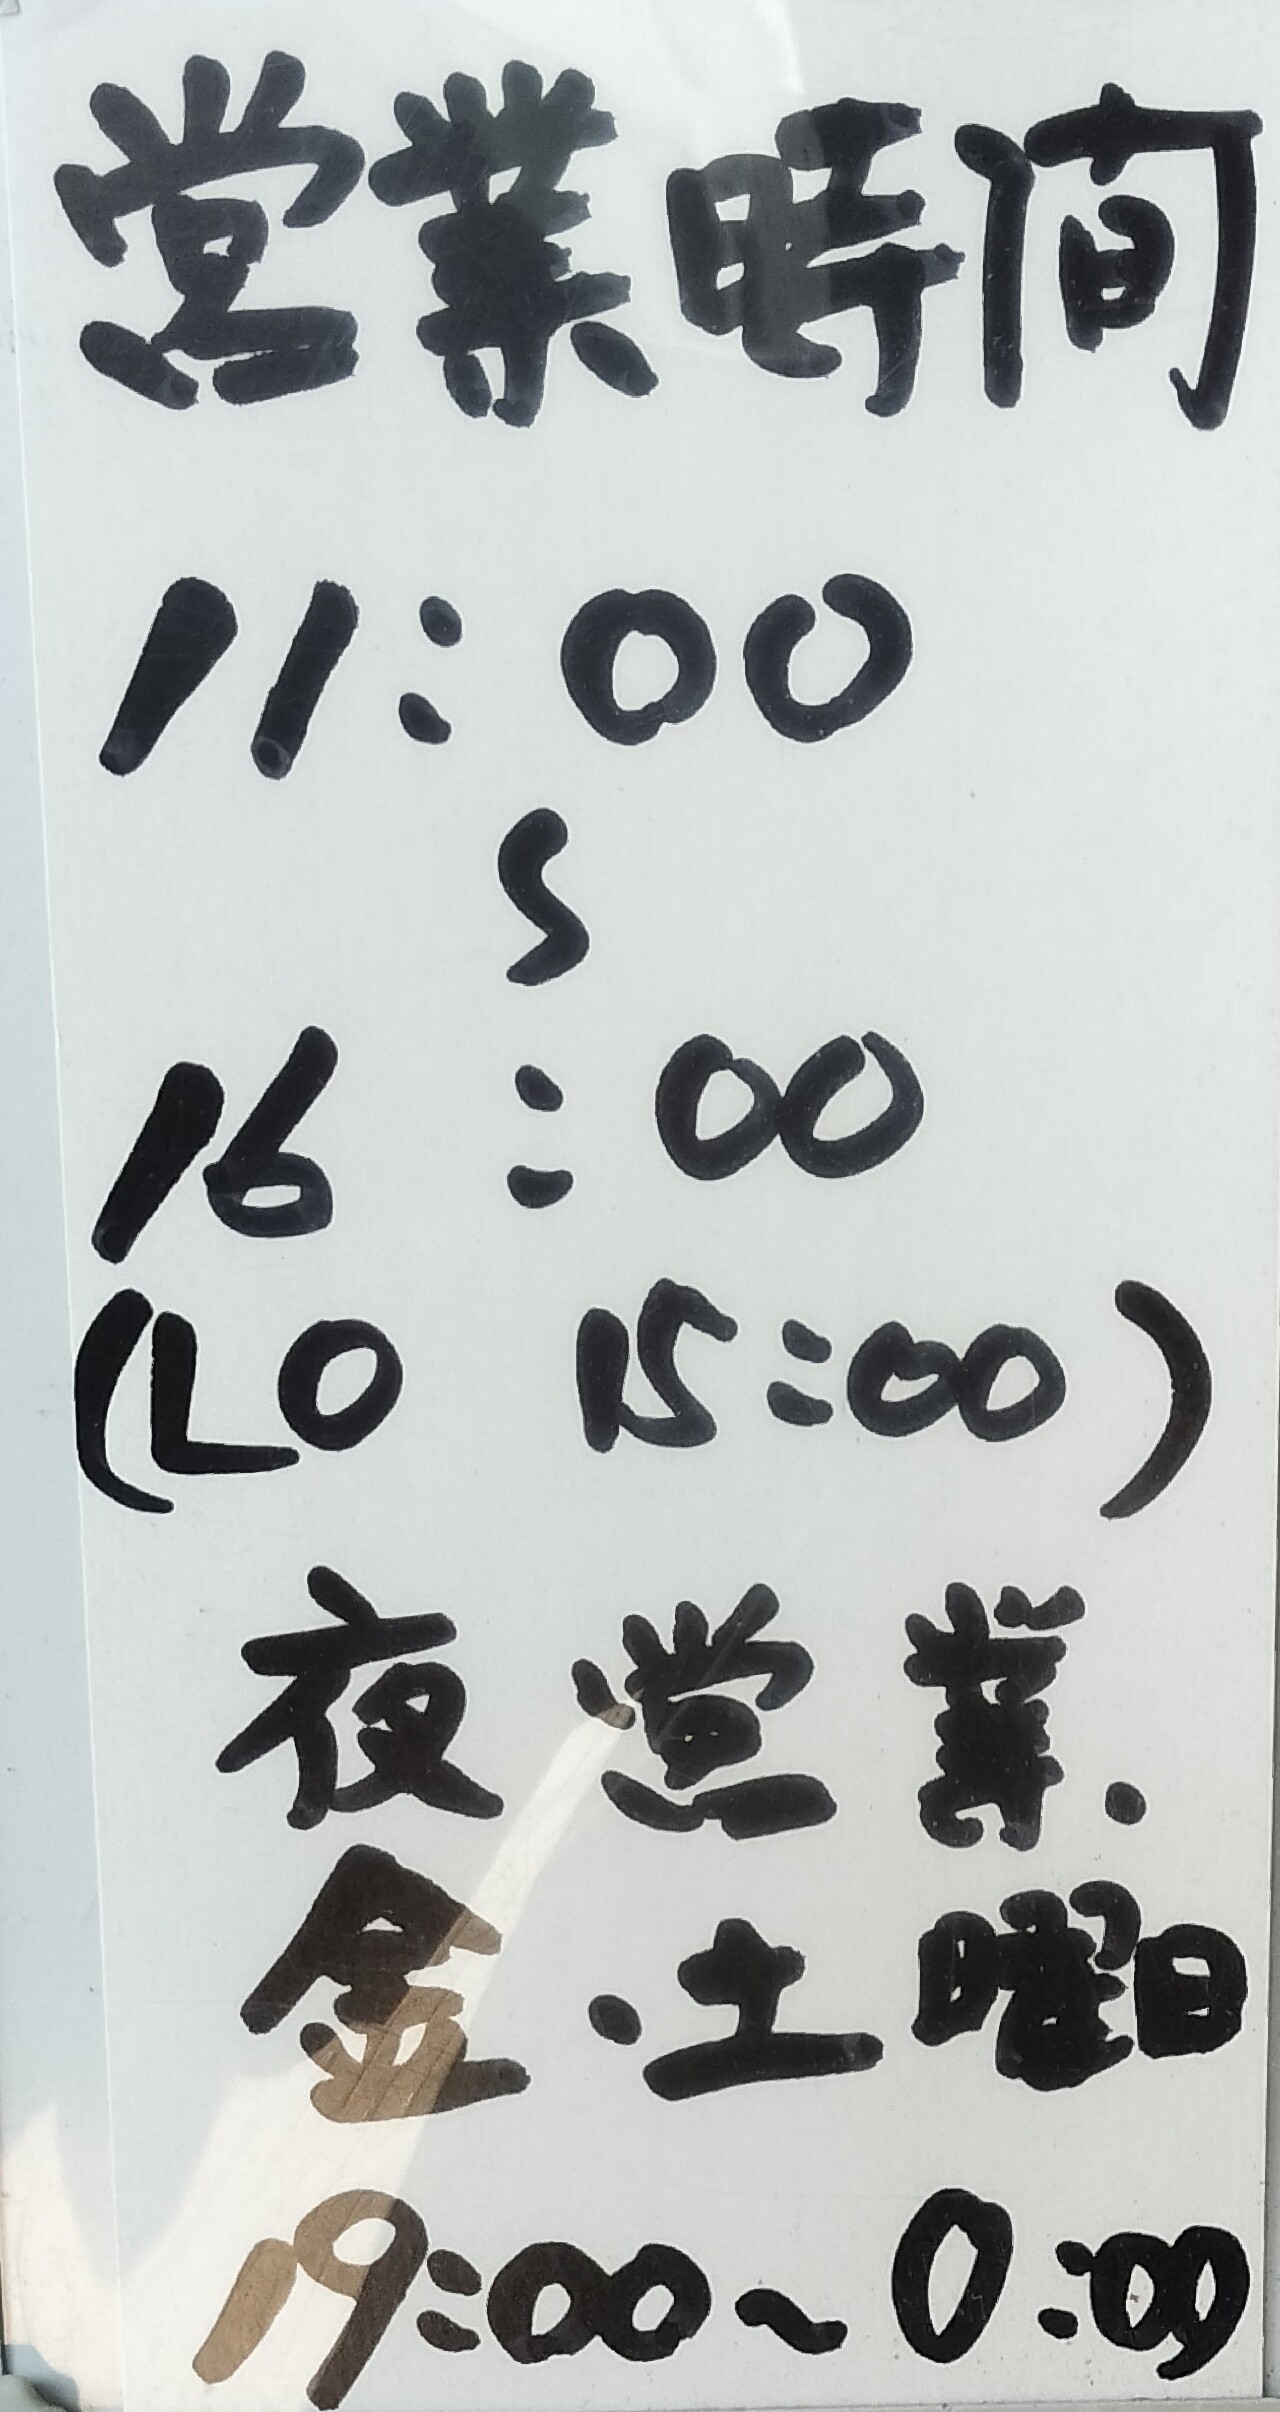 営業時間
11:00
〜
16:00
(LO 15:00)
夜営業.
金・土曜日
19:00～0:00